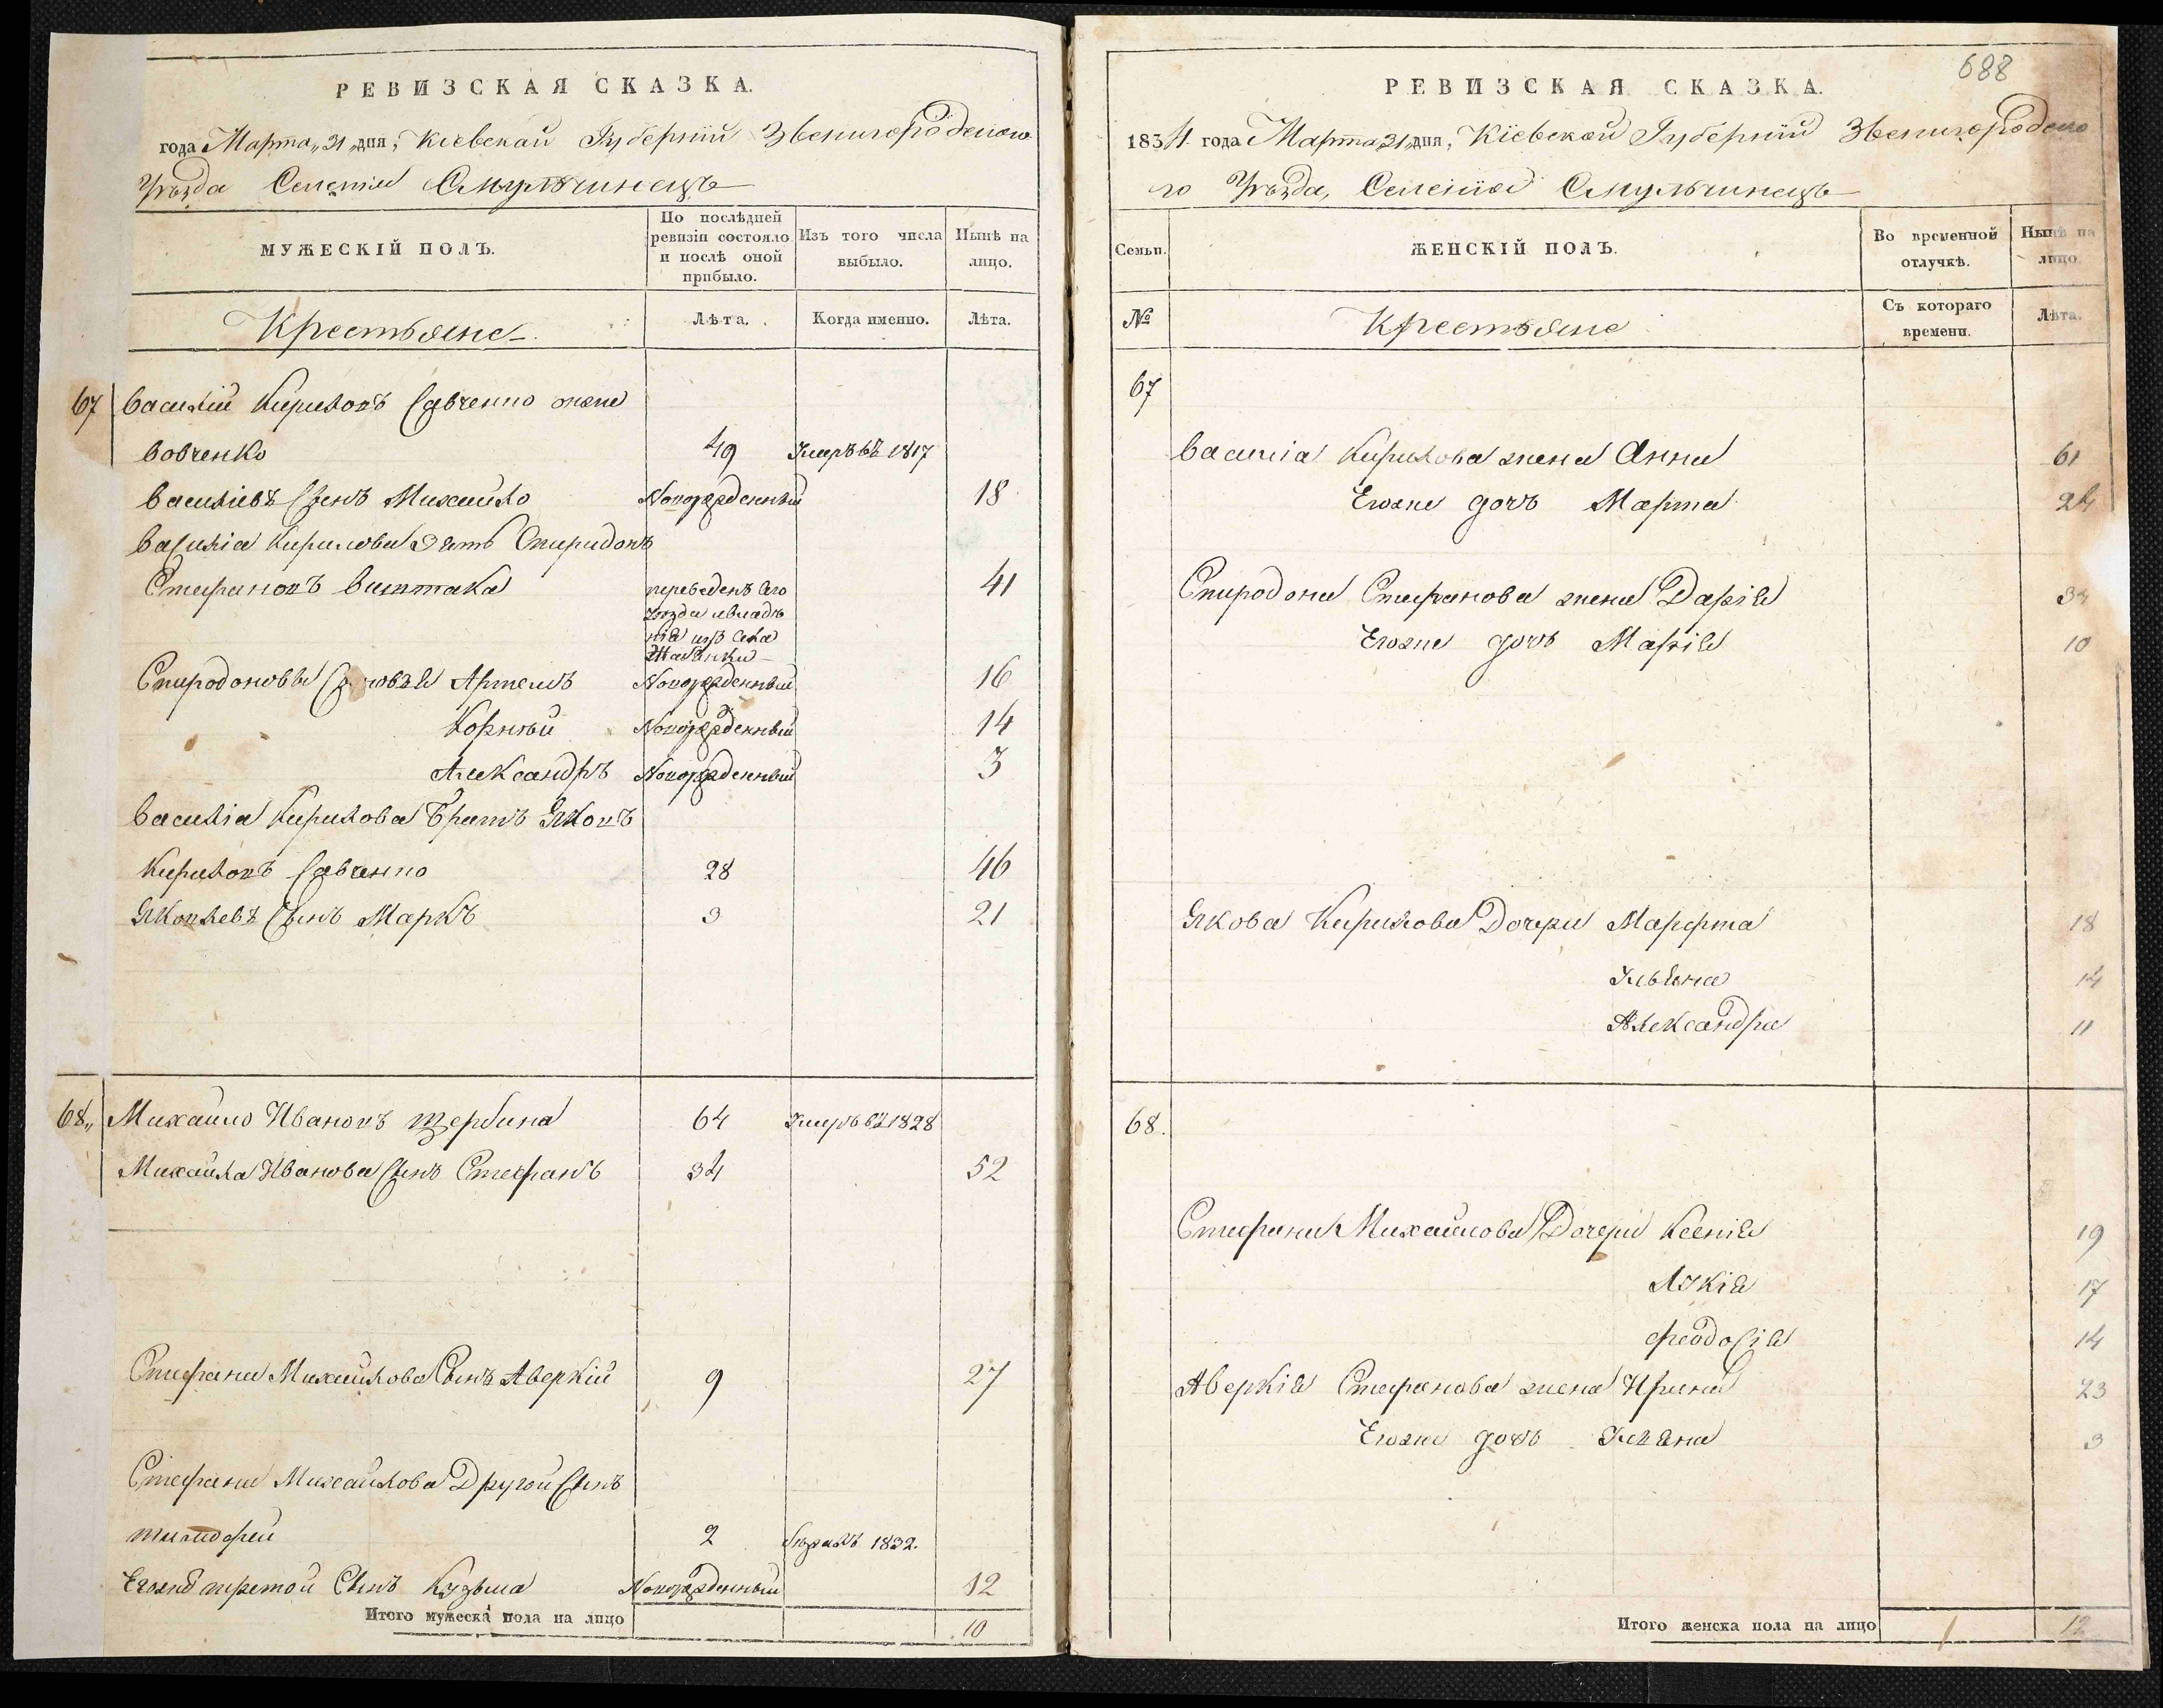 РЕВИЗСКАЯ СКАЗКА.
года Марта „31„ дня, Кіевской Губерніи Звенигородского
Уѣзда Селенія Смульчинецъ
МУЖЕСКІЙ ПОЛЪ.
По послѣдней ревизіи состояло и послѣ оной прибыло.
Изъ того числа выбыло.
Нынѣ на лицо.
Крестьяне
Лѣта.
Когда именно.
Лѣта.
67 Василій Кириловъ Савченко онже
вовченко 49 Умеръ въ 1817
Василіевъ Сынъ Михайло Новорожденный 18
Василіа Кирилова Зять Спиридонъ
Стефановъ 41
переведенъ сего
Уѣзда
изъ села
Спиродоновы Сыновья Артемъ Новорожденный 16
Корнѣй Новорожденный 14
Александръ Новорожденный 3
Василіа Кирилова Братъ Яковъ
Кириловъ Савченко 28 46
Яковлевъ Сынъ Маркъ 3 21
68„ Михайло Ивановъ Щербина 64 Умеръ въ 1828
Михайла Иванова Сынъ Стефанъ 34 52
Стефана Михайлова Сынъ Аверкій 9 27
Стефана Михайлова Другой Сынъ
тимофей 2 бѣжалъ 1832.
Егоже третой Сынъ Кузьма Новорожденный 12
Итого мужеска пола на лицо 10
688
РЕВИЗСКАЯ СКАЗКА.
1834 года Марта 31 дня, Кіевской Губерніи Звенигородско
го Уѣзда, Селенія Смульчинецъ
Семьи.
ЖЕНСКІЙ ПОЛЪ.
Во временной отлучкѣ.
Нынѣ на лицо
№
Крестьяне
Съ котораго времени.
Лѣта.
67
Василіа Кирилова жена Анна 61
Егоже дочь Марта 24
Спиродона Стефанова жена Дарія 34
Егоже дочь Марія 10
Якова Кирилова Дочери Марфта 18
Ульяна 14
Александра 11
68.
Стефана Михайлова Дочери Ксенія 19
17
феодосія 14
Аверкія Стефанова жена Ирина 23
Егоже дочь Ульяна 3
Итого женска пола на лицо 1 12